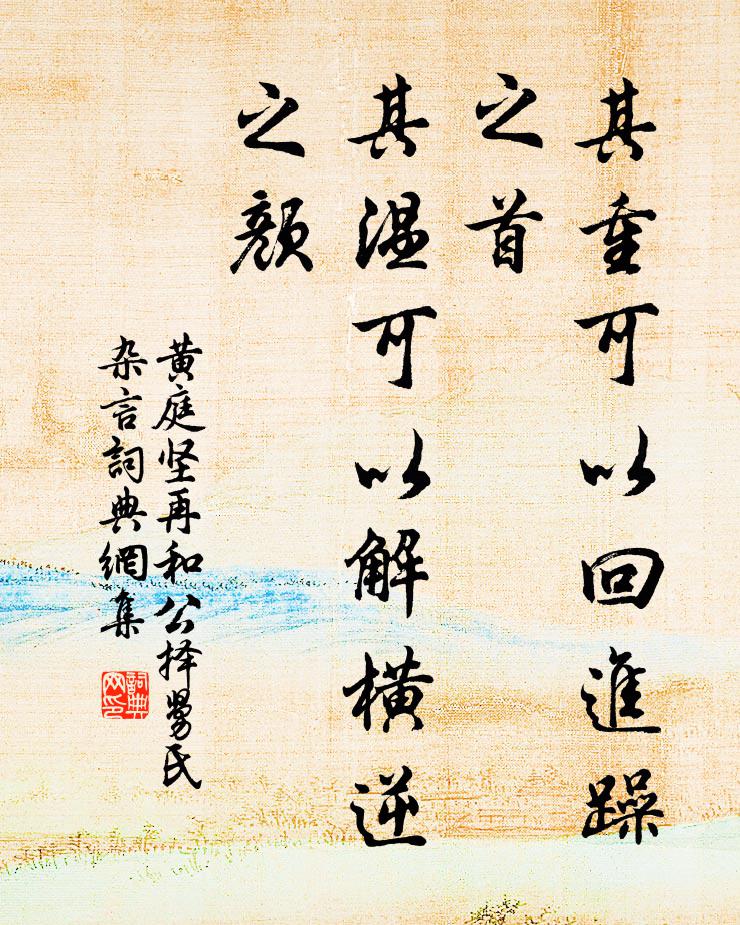 其重可以回進躁
之首
其温可以解橫逆
之顏
黄庭坚再和公择舅氏
杂言詞典網集
詞典
网印